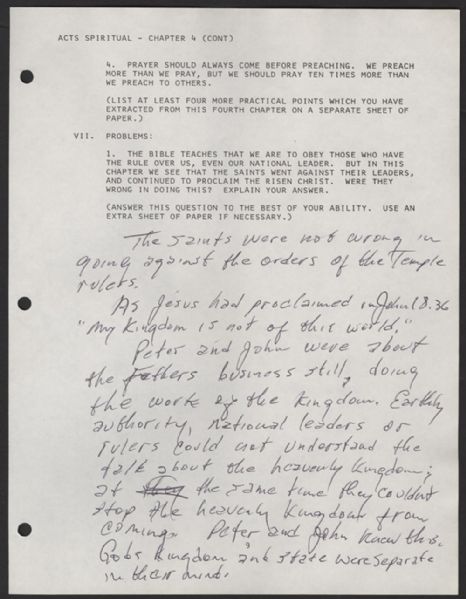 ACTS SPIRITUAL - CHAPTER 4 (CONT)
4. PRAYER SHOULD ALWAYS COME BEFORE PREACHING. WE PREACH
MORE THAN WE PRAY, BUT WE SHOULD PRAY TEN TIMES MORE THAN
WE PREACH TO OTHERS.
(LIST AT LEAST FOUR MORE PRACTICAL POINTS WHICH YOU HAVE
EXTRACTED FROM THIS FOURTH CHAPTER ON A SEPARATE SHEET OF
PAPER.)
VII. PROBLEMS:
1. THE BIBLE TEACHES THAT WE ARE TO OBEY THOSE WHO HAVE
THE RULE OVER US, EVEN OUR NATIONAL LEADER. BUT IN THIS
CHAPTER WE SEE THAT THE SAINTS WENT AGAINST THEIR LEADERS,
AND CONTINUED TO PROCLAIM THE RISEN CHRIST. WERE THEY
WRONG IN DOING THIS? EXPLAIN YOUR ANSWER.
(ANSWER THIS QUESTION TO THE BEST OF YOUR ABILITY. USE AN
EXTRA SHEET OF PAPER IF NECESSARY.)
The saints were not wrong in
going against the orders of the Temple
rulers.
As Jesus had proclaimed in John 18:36
"My Kingdom is not of this world."
Peter and John were about
the Fathers business still, doing
the work of the Kingdom. Earthly
authority, national leaders or
rulers could not understand the
talk about the heavenly Kingdom;
at they the same time they couldn't
stop the heavenly Kingdom from
coming. Peter and John knew this.
Gods Kingdom and state were separate
in their minds.